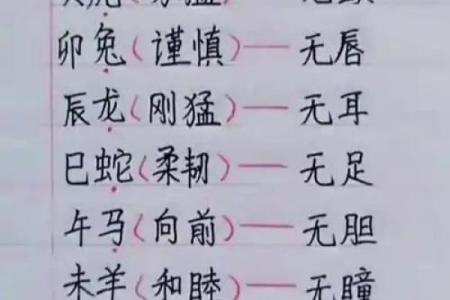 虎(勇猛)——无颈
卯兔(谨慎)——无唇
辰龙(刚猛)——无耳
巳蛇(柔韧)——无足
午马(向前)——无胆
未羊(和睦)——无瞳